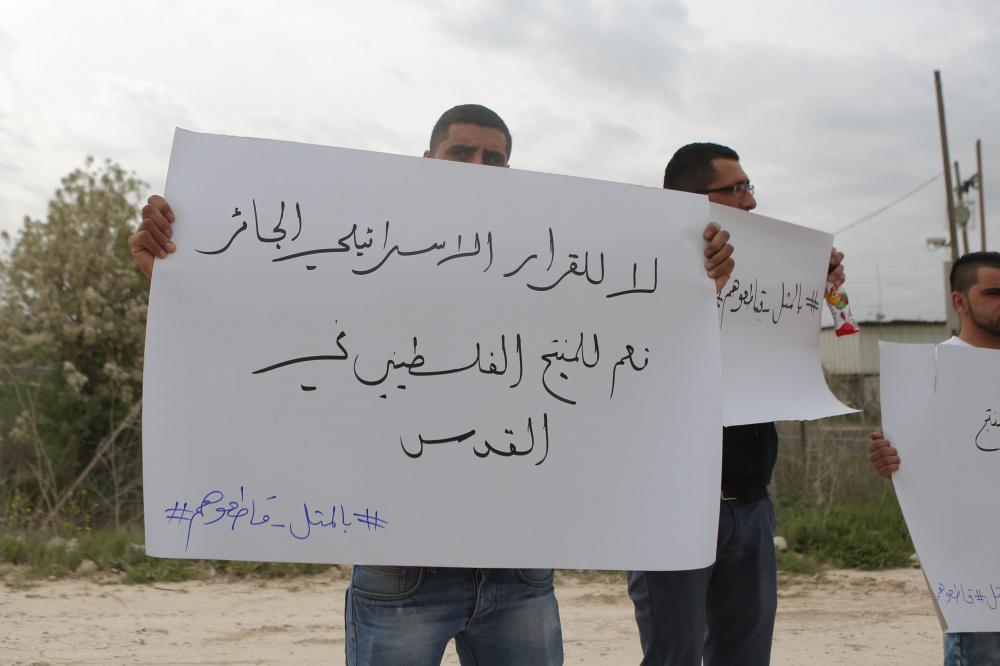 لا للقرار الاسرائيلي الجائر
نعم للمنتج الفلسطيني في
القدس
#بالمثل_قاطعوهم#
#بالمثل_قاطعوهم
لمنتج
#قاطعوهم